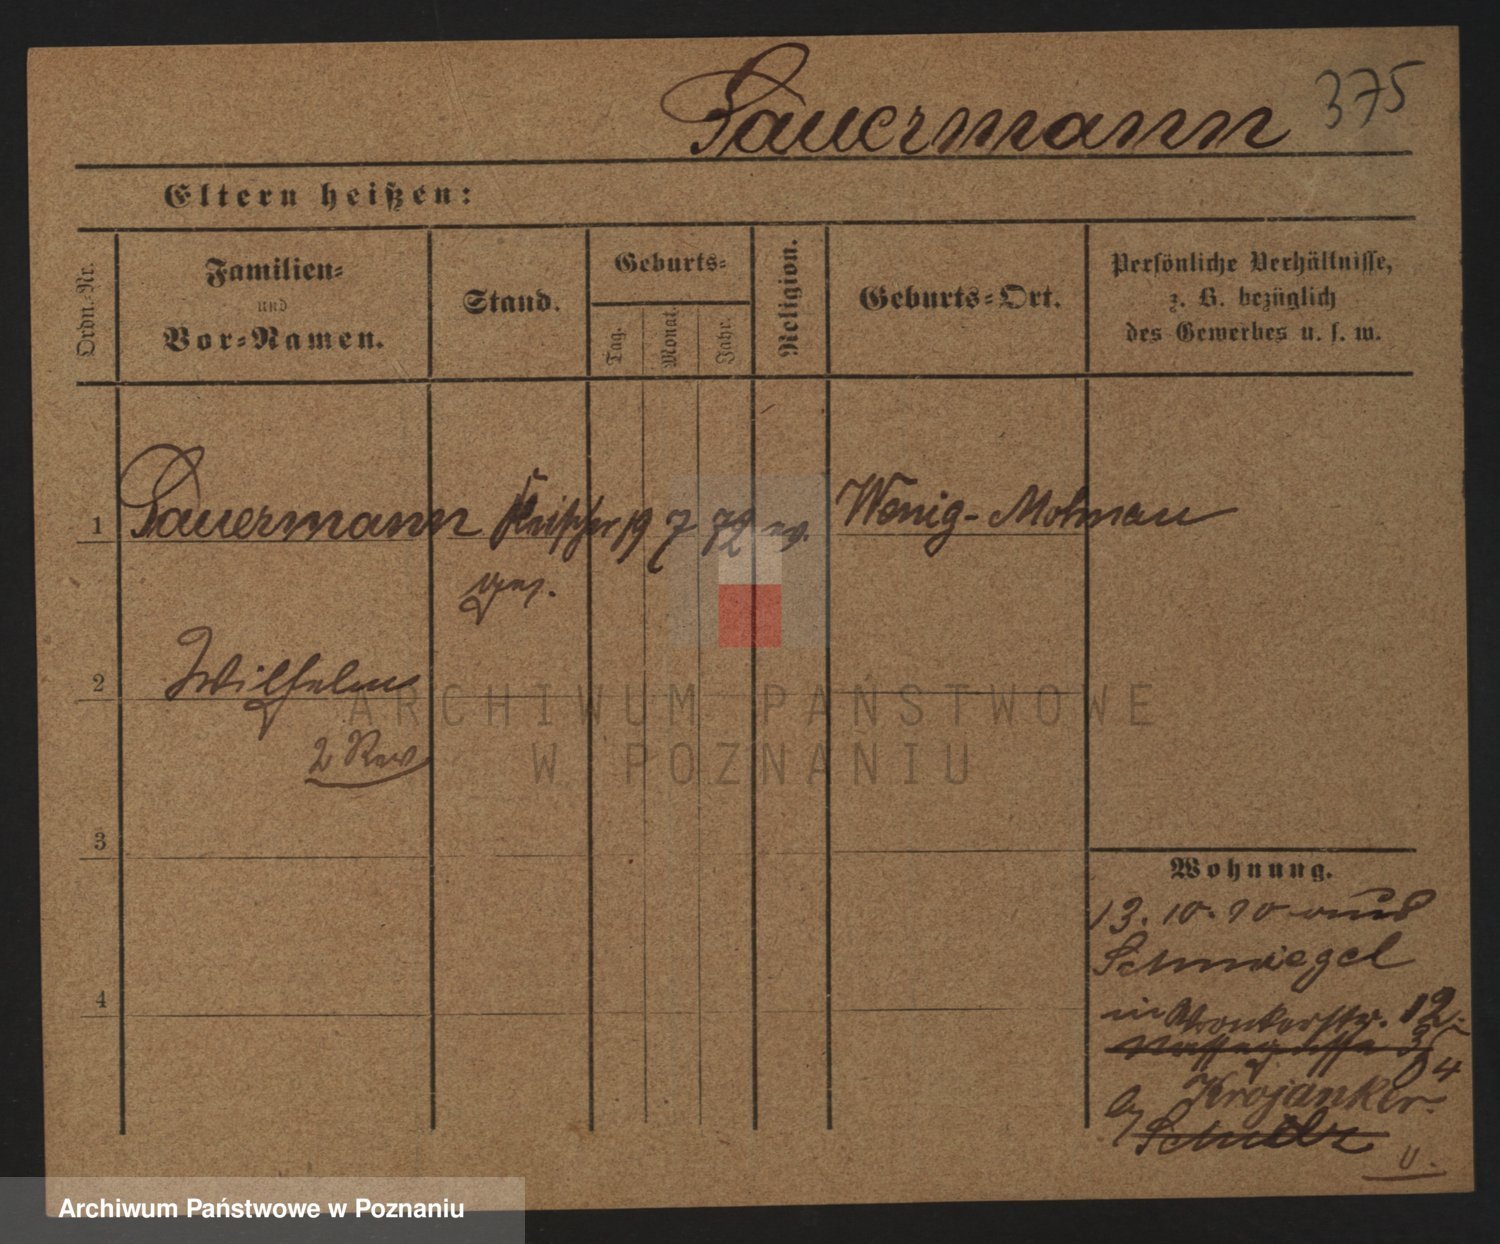 Sauermann 375
Eltern heißen:
Ordn.-Nr.
Familien-
und
Vor-Namen.
Stand.
Geburts-
Tag.
Monat.
Jahr.
Religion.
Geburts-Ort.
Persönliche Verhältnisse,
z. B. bezüglich
des Gewerbes u. s. w.
1 Sauermann Fleischer 19 7 72 ev. Wenig-Mohnau
ges.
2 Wilhelm
2 Rev
3
4
Wohnung.
13. 10. 90 aus
Schmiegel
in Wronkerstr. 12.
Krojanker
ARCHIWUM PAŃSTWOWE
W POZNANIU
Archiwum Państwowe w Poznaniu